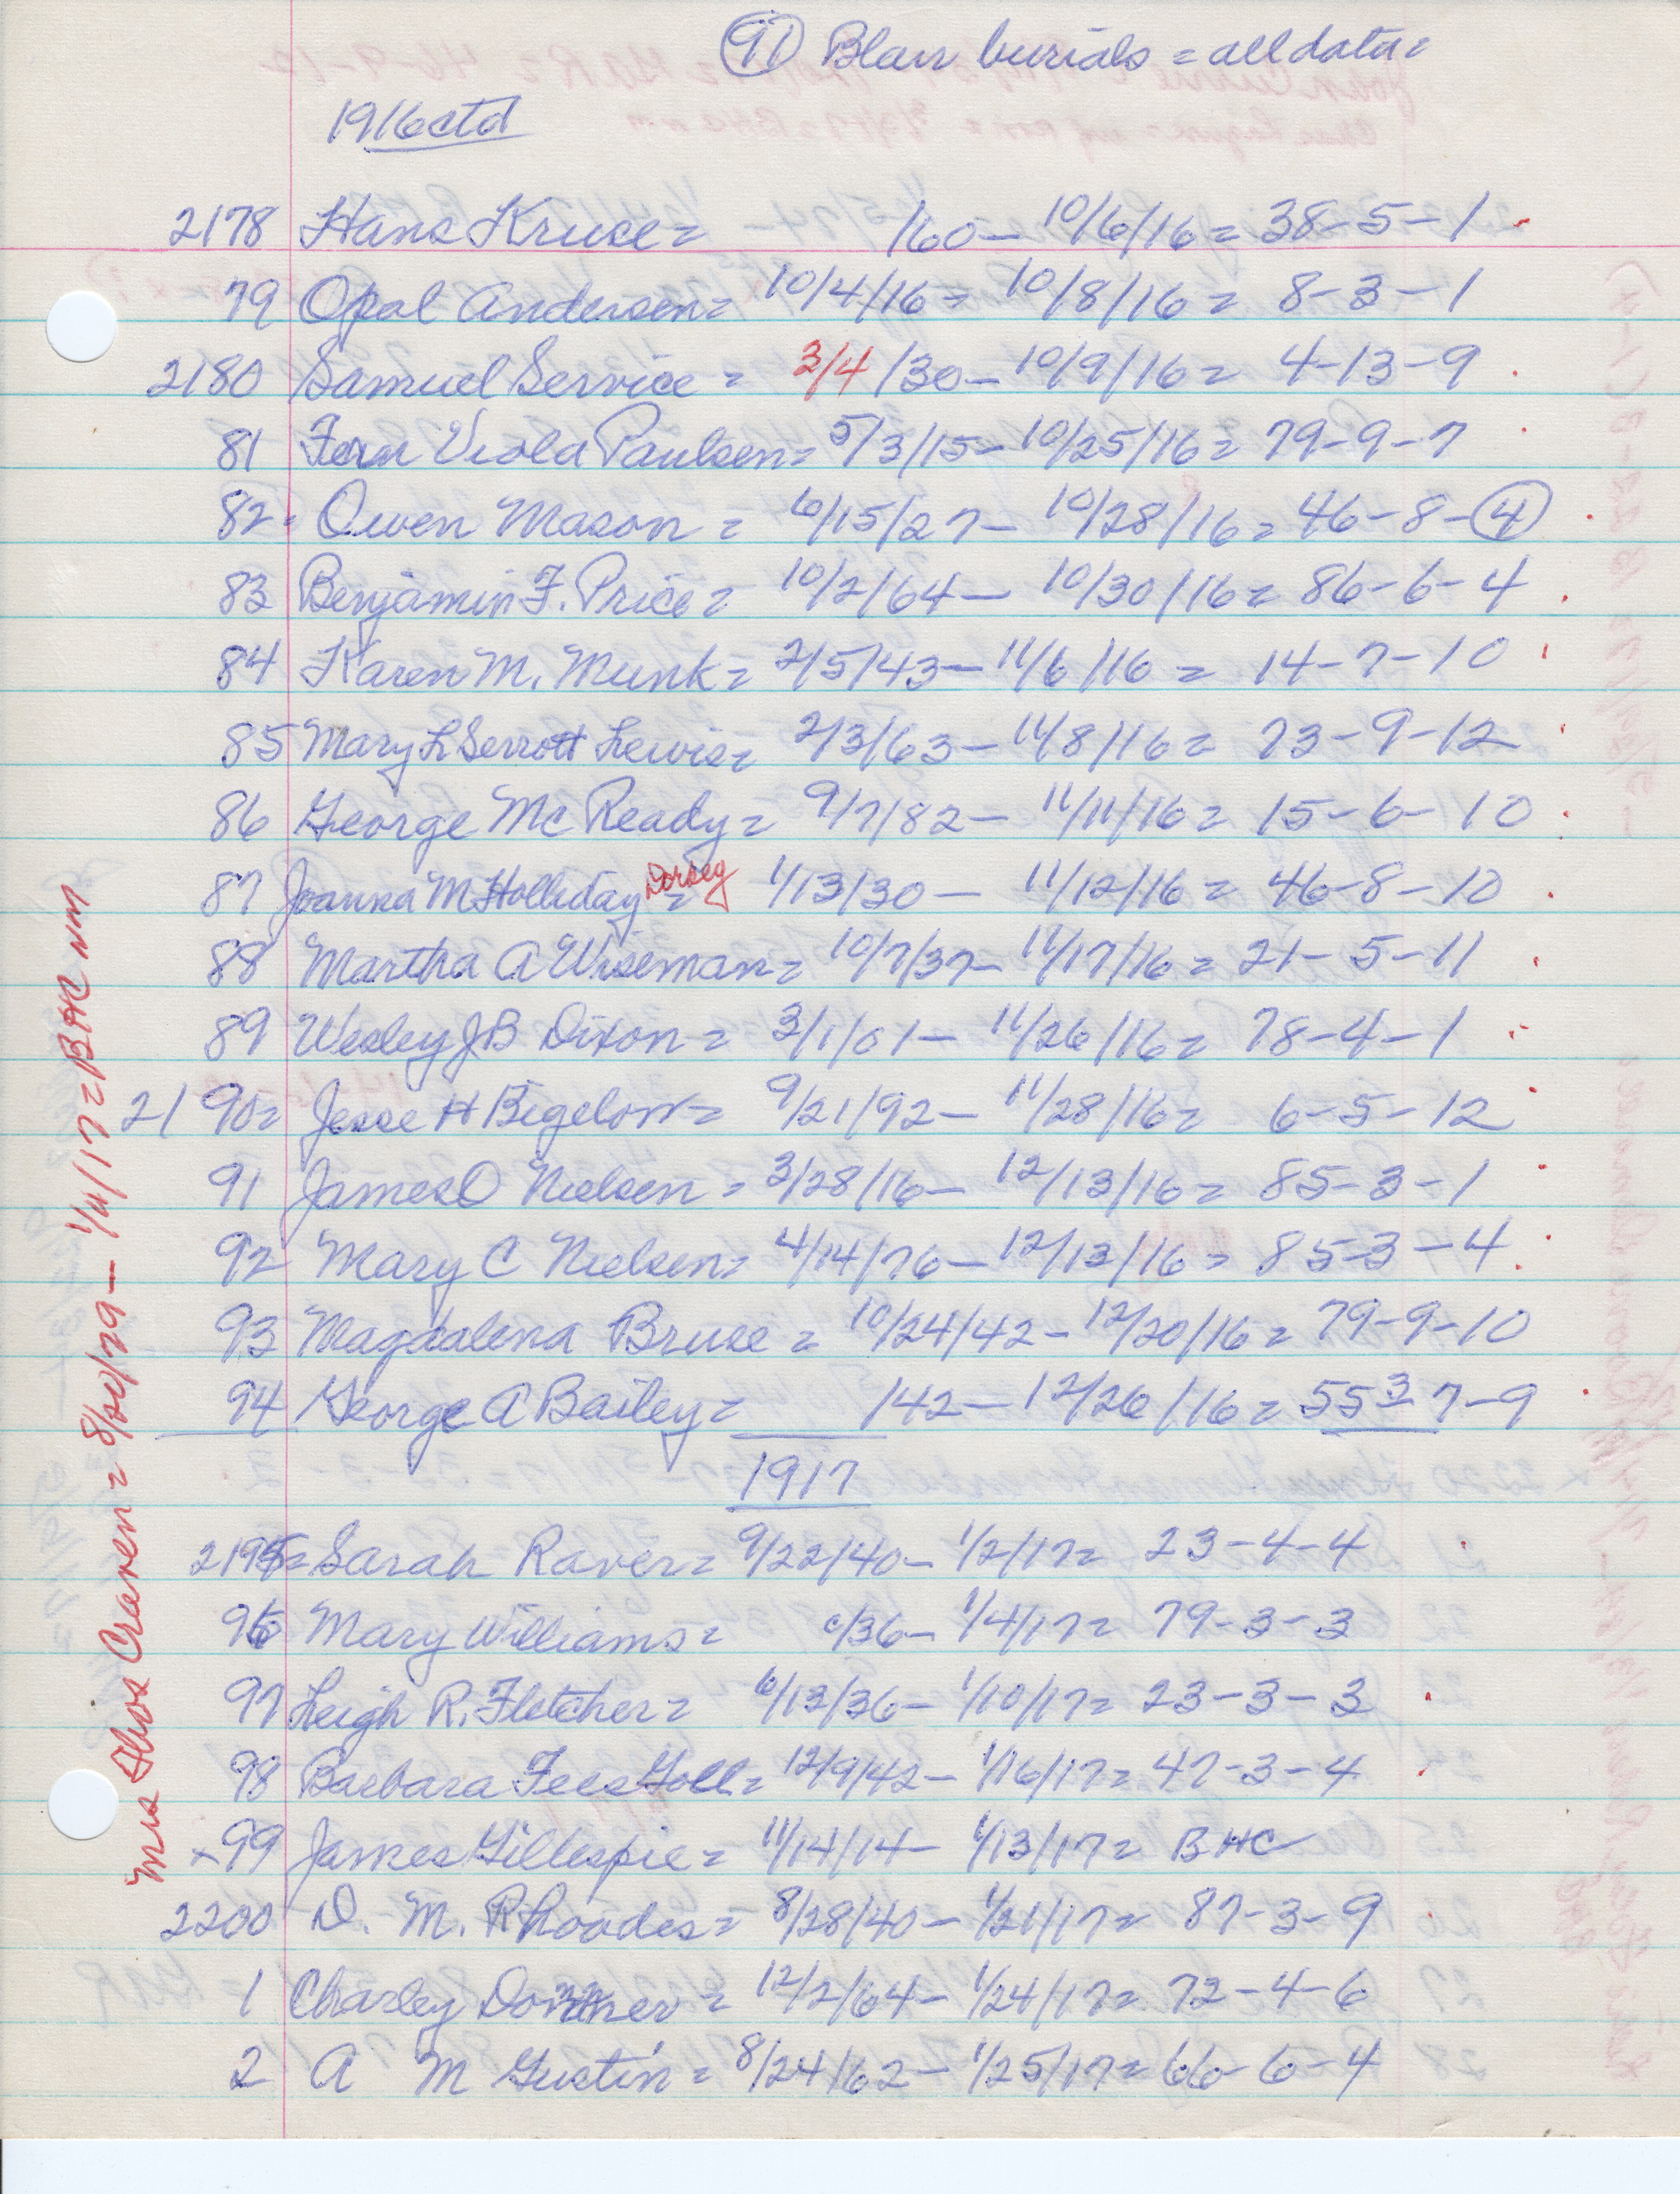 (91) Blair burials = all data =
1916 ctd
2178 Hans Kruse = /60 — 10/6/16 = 38-5-1
79 Opal Andersen = 10/4/16 = 10/8/16 = 8-3-1
2180 Samuel Service = 3/4/30 — 10/9/16 = 4-13-9
81 Fern Viola Paulsen = 5/3/15 — 10/25/16 = 79-9-7
82 Owen Mason = 6/15/27 — 10/28/16 = 46-8-(4)
83 Benjamin F. Price = 10/2/64 — 10/30/16 = 86-6-4
84 Karen M. Munk = 2/5/43 — 11/6/16 = 14-7-10
85 Mary L Serrott Lewis = 2/3/63 — 11/8/16 = 73-9-12
86 George Mc Ready = 9/7/82 — 11/11/16 = 15-6-10
87 Joanna M Holliday Dorsey = 1/13/30 — 11/12/16 = 46-8-10
88 Martha A Wiseman = 10/7/37 — 11/17/16 = 21-5-11
89 Wesley JB Dixon = 3/1/01 — 11/26/16 = 78-4-1
2190 = Jesse H Bigelow = 9/21/92 — 11/28/16 = 6-5-12
91 James O Nielsen = 3/28/16 — 12/13/16 = 85-3-1
92 Mary C Nielsen = 4/14/76 — 12/13/16 = 85-3-4
93 Magdalena Bruse = 10/24/42 — 12/20/16 = 79-9-10
94 George A Bailey = /42 — 12/26/16 = 553 7-9
1917
2195 = Sarah Raver = 9/22/40 — 1/2/17 = 23-4-4
96 Mary Williams = c/36 — 1/4/17 = 79-3-3
97 Leigh R. Fletcher = 6/13/36 — 1/10/17 = 23-3-3
98 Barbara Fees Goll = 12/9/42 — 1/16/17 = 47-3-4
x 99 James Gillespie = 11/14/14 — 1/13/17 = BHC
2200 D. M. Rhoades = 8/28/40 — 1/21/17 = 87-3-9
1 Charley = 12/2/64 — 1/24/17 = 72-4-6
2 A M Gustin = 8/24/62 — 1/25/17 = 66-6-4
Mrs Craven = — 1/4/17 = BHC nm